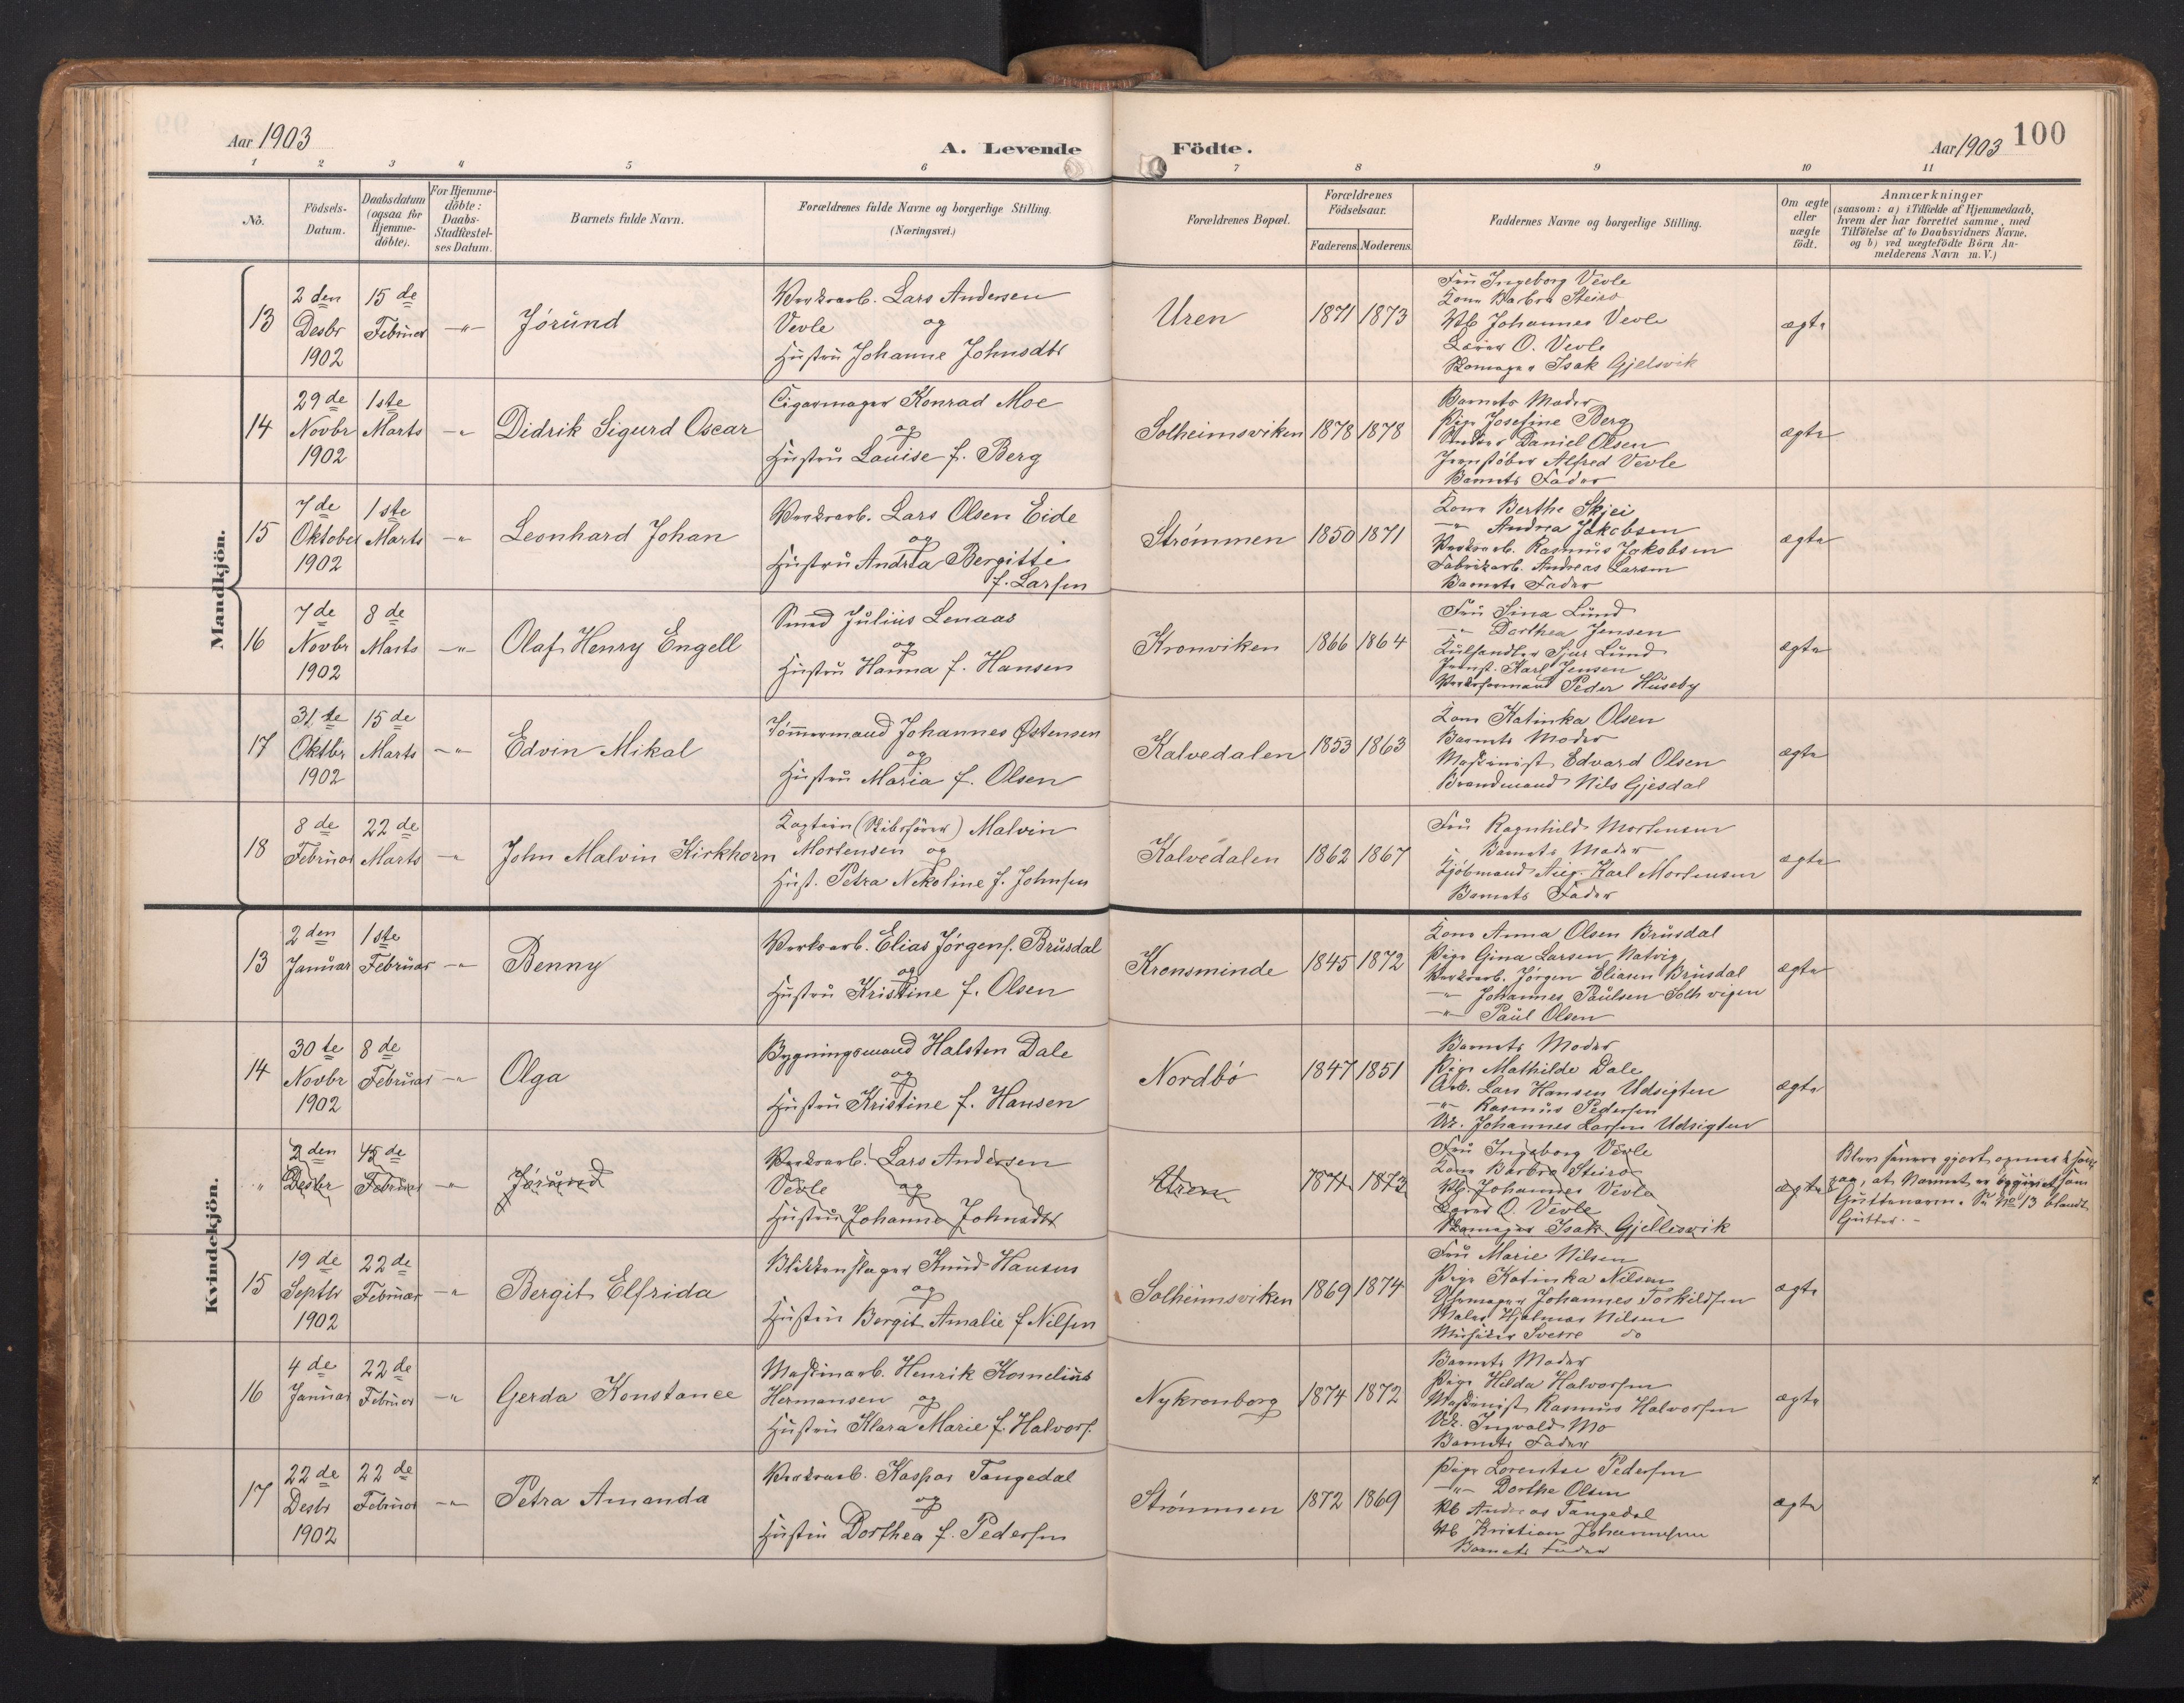 Aar 1903
A. Levende
Födte.
Aar 1903
100
1 2 3 4 5 6 7 8 9 10 11
Nô.
Födsels-
Datum.
Daabsdatum
(ogsaa for
Hjemme-
döbte).
For Hjemme-
döbte:
Daabs-
Stadfæstel-
ses Datum.
Barnets fulde Navn.
Forældrenes fulde Navne og borgerlige Stilling.
(Næringsvei.)
Forældrenes Bopæl.
Forældrenes
Födselsaar.
Faderens. Moderens.
Faddernes Navne og borgerlige Stilling.
Om ægte
eller
uægte
födt.
Anmærkninger
(saasom: a) i Tilfælde af Hjemmedaab,
hvem der har forrettet samme, med
Tilföielse af to Daabsvidners Navne,
og b) ved uægtefödte Börn An-
melderens Navn m. V.)
Mandkjön.
13
2 den
Desbr
1902
15 de
Februar
-"-
Jórund
Verksarb. Lars Andersen
Vevle og
Hustru Johanne Johnsdtr
Uren
1871 1873
Fru Ingeborg Vevle
Kone Barbra Steiro
Vb Johannes Vevle
Lærer O. Vevle
Skomager Isak Gjelsvik
ægte
14
29 de
Novbr
1902
1ste
Marts
-"
Didrik Sigurd Oscar
Cigarmager Konrad Moe
og
Hustru Louise f. Berg
Solheimsviken
1878 1878
Barnets Moder
Pige Josefine Berg
Daniel Olsen
Jernstøber Alfred Vevle
Barnets Fader
ægte
15
7 de
Oktober
1902
1ste
Marts
-"
Leonhard Johan
Verksarb. Lars Olsen Eide
og
Hustru Andrea Bergitte
f. Larsen
Strømmen
1850 1871
Kone Berthe Skjei
-"- Andrea Jakobsen
Verksarb. Rasmus Jakobsen
Fabrikarb. Andreas Larsen
Barnets Fader
ægte
16
7 de
Novbr
1902
8 de
Marts
-"-
Olaf Henry Engell
Smed Julius Lenaas
og
Hustru Hanna f. Hansen
Kronviken
1866 1864
Fru Sina Lund
-"- Dorthea Jensen
Kulhandler Sjur Lund
Jernst. Karl Jensen
Verksformand Peder Huseby
ægte
17
31 te
Oktbr
1902
15 de
Marts
-"-
Edvin Mikal
Tømmermand Johannes Østensen
og
Hustru Maria f. Olsen
Kalvedalen
1853 1863
Kone Katinka Olsen
Barnets Moder
Maskinist Edvard Olsen
Brandmand Nils Gjesdal
ægte
18
8 de
Februar
22 de
Marts
-"
John Malvin Kirkhorn
Kaptein (Skibsfører) Malvin
Mortensen og
Hust. Petra Nikoline f. Johnsen
Kalvedalen
1862 1867
Fru Ragnhild Mortensen
Barnets Moder
Kjøbmand Aug. Karl Mortensen
Barnets Fader
ægte
Kvindekjön.
13
2 den
Januar
1ste
Februar
-"
Benny
Verksarb. Elias Jørgens. Brusdal
og
Hustru Kristine f. Olsen
Kronsminde
1845 1872
Kone Anna Olsen Brusdal
Pige Gina Larsen Natvig
Verksarb. Jørgen Eliasen Brusdal
-"- Johannes Paulsen Solhvigen
-"- Paul Olsen
ægte
14
30 te
Novbr
1902
8 de
Februar
-"
Olga
Bygningsmand Halsten Dale
og
Hustru Kristine f. Hansen
Nordbö
1847 1851
Barnets Moder
Pige Mathilde Dale
Arb. Lars Hansen Udsigten
-"- Rasmus Pedersen
Johannes Larsen Udsigten
ægte
"
2 den
Desbr
15 de
Februar
"
Jórund
Verksarb. Lars Andersen
Vevle og
Hustru Johanne Johnsdtr
Uren
1871 1873
Fru Ingeborg Vevle
Kone Barbra Steiro
Vb. Johannes Vevle
Lærer O. Vevle
Skomager Isak Gjellesvik
ægte
Blev senere gjort opmerksom
paa, at Navnet er opgivet som
Guttenavn. Se No 13 blandt
Gutter. -
15
19 de
Septbr
1902
22 de
Februar
-"
Bergit Elfrida
Blikkenslager Knud Hansen
og
Hustru Bergit Amalie f Nilsen
Solheimsviken
1869 1874
Fru Marie Nilsen
Pige Katinka Nilsen
Uhrmager Johannes Torkildsen
Maler Hjalmar Nilsen
Musiker Sverre do
ægte
16
4 de
Januar
22 de
Februar
-"
Gerda Konstance
Maskinarb. Henrik Kornelius
Hermansen og
Hustru Klara Marie f. Halvors.
Nykronborg
1874 1872
Barnets Moder
Pige Hilda Halvorsen
Maskinist Rasmus Halvorsen
Ingvald Mo
Barnets Fader
ægte
17
22 de
Desbr
1902
22 de
Februar
-"
Petra Amanda
Verksarb. Kaspar Tangedal
og
Hustru Dorthea f. Pedersen
Strømmen
1872 1869
Pige Lorentse Pedersen
-"- Dorthe Olsen
Vb Andreas Tangedal
Vb Kristian Johannesen
Barnets Fader
ægte